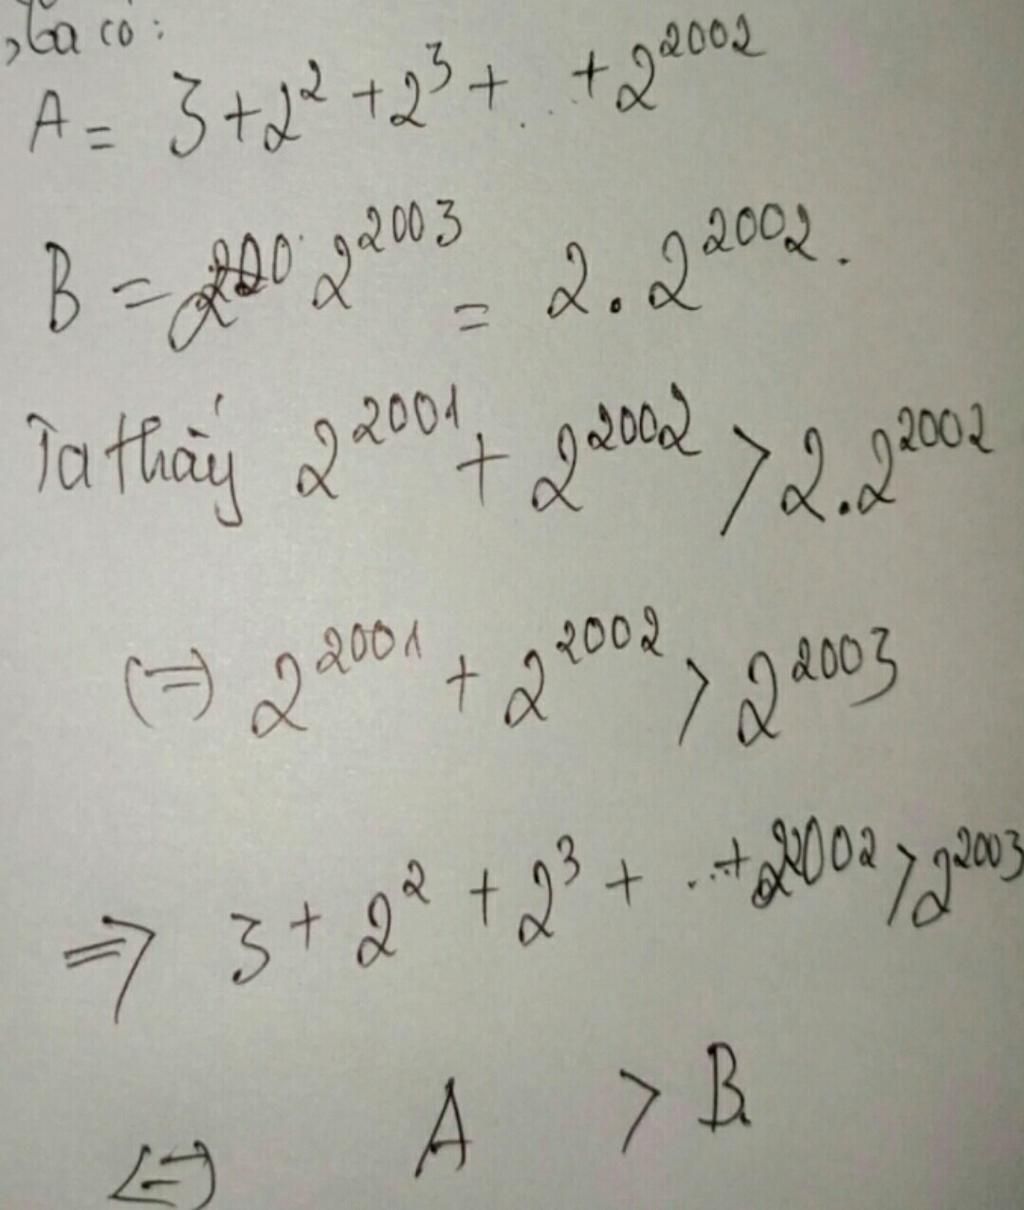 , ta có:
A = 3 + 2² + 2³ + ... + 2²⁰⁰²
B = 2²⁰⁰³ = 2 . 2²⁰⁰².
Ta thấy 2²⁰⁰¹ + 2²⁰⁰² > 2 . 2²⁰⁰²
(=) 2²⁰⁰¹ + 2²⁰⁰² > 2²⁰⁰³
=> 3 + 2² + 2³ + ... + 2²⁰⁰² > 2²⁰⁰³
<=) A > B